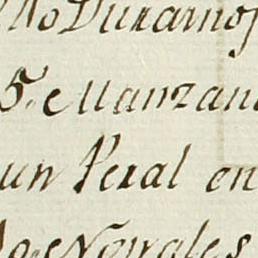 Duramos
5. Manzan
un Peral en
Nogales